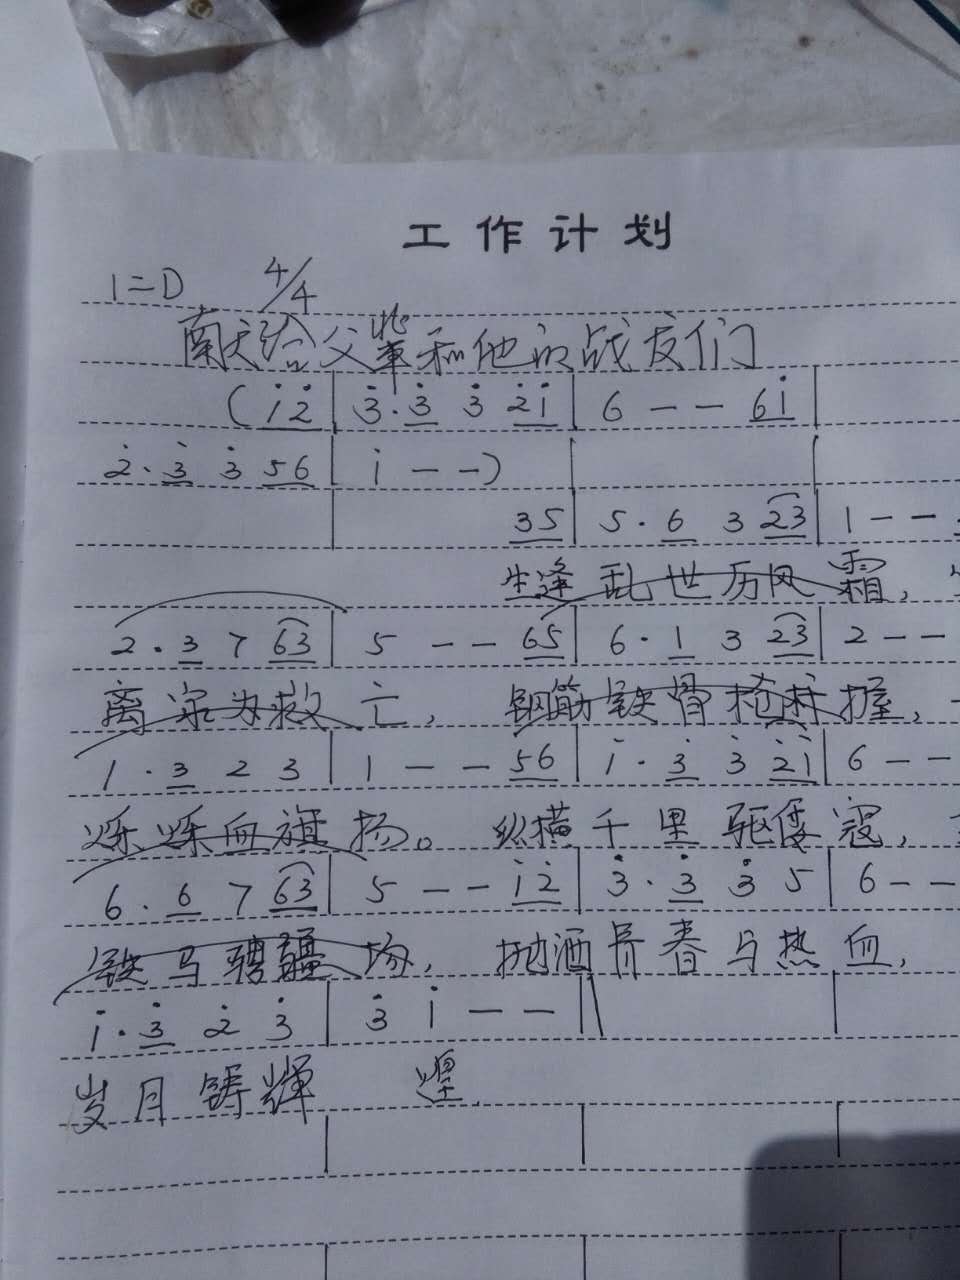 工作计划
1=D 4/4
献给父辈和他的战友们
(i̇2̇ | 3̇.3̇ 3̇ 2̇i̇ | 6 - - 6i̇ |
2̇.3̇ 3̇ 56 | i̇ - -)
35 | 5.6 3 23 | 1 - -
生逢乱世历风霜,
2.3 7 63 | 5 - - 65 | 6.1 3 23 | 2 - -
离家为救亡, 钢筋铁骨枪麻握,
1.3 2 3 | 1 - - 56 | i̇.3̇ 3̇ 2̇i̇ | 6 - -
烁烁血旗扬。纵横千里驱倭寇,
6.6 7 63 | 5 - - i̇2̇ | 3̇.3̇ 3̇ 5 | 6 - -
铁马骋疆场, 抛洒青春与热血,
i̇.3̇ 2̇ 3̇ | 3̇ i̇ - - ‖
岁月铸辉煌